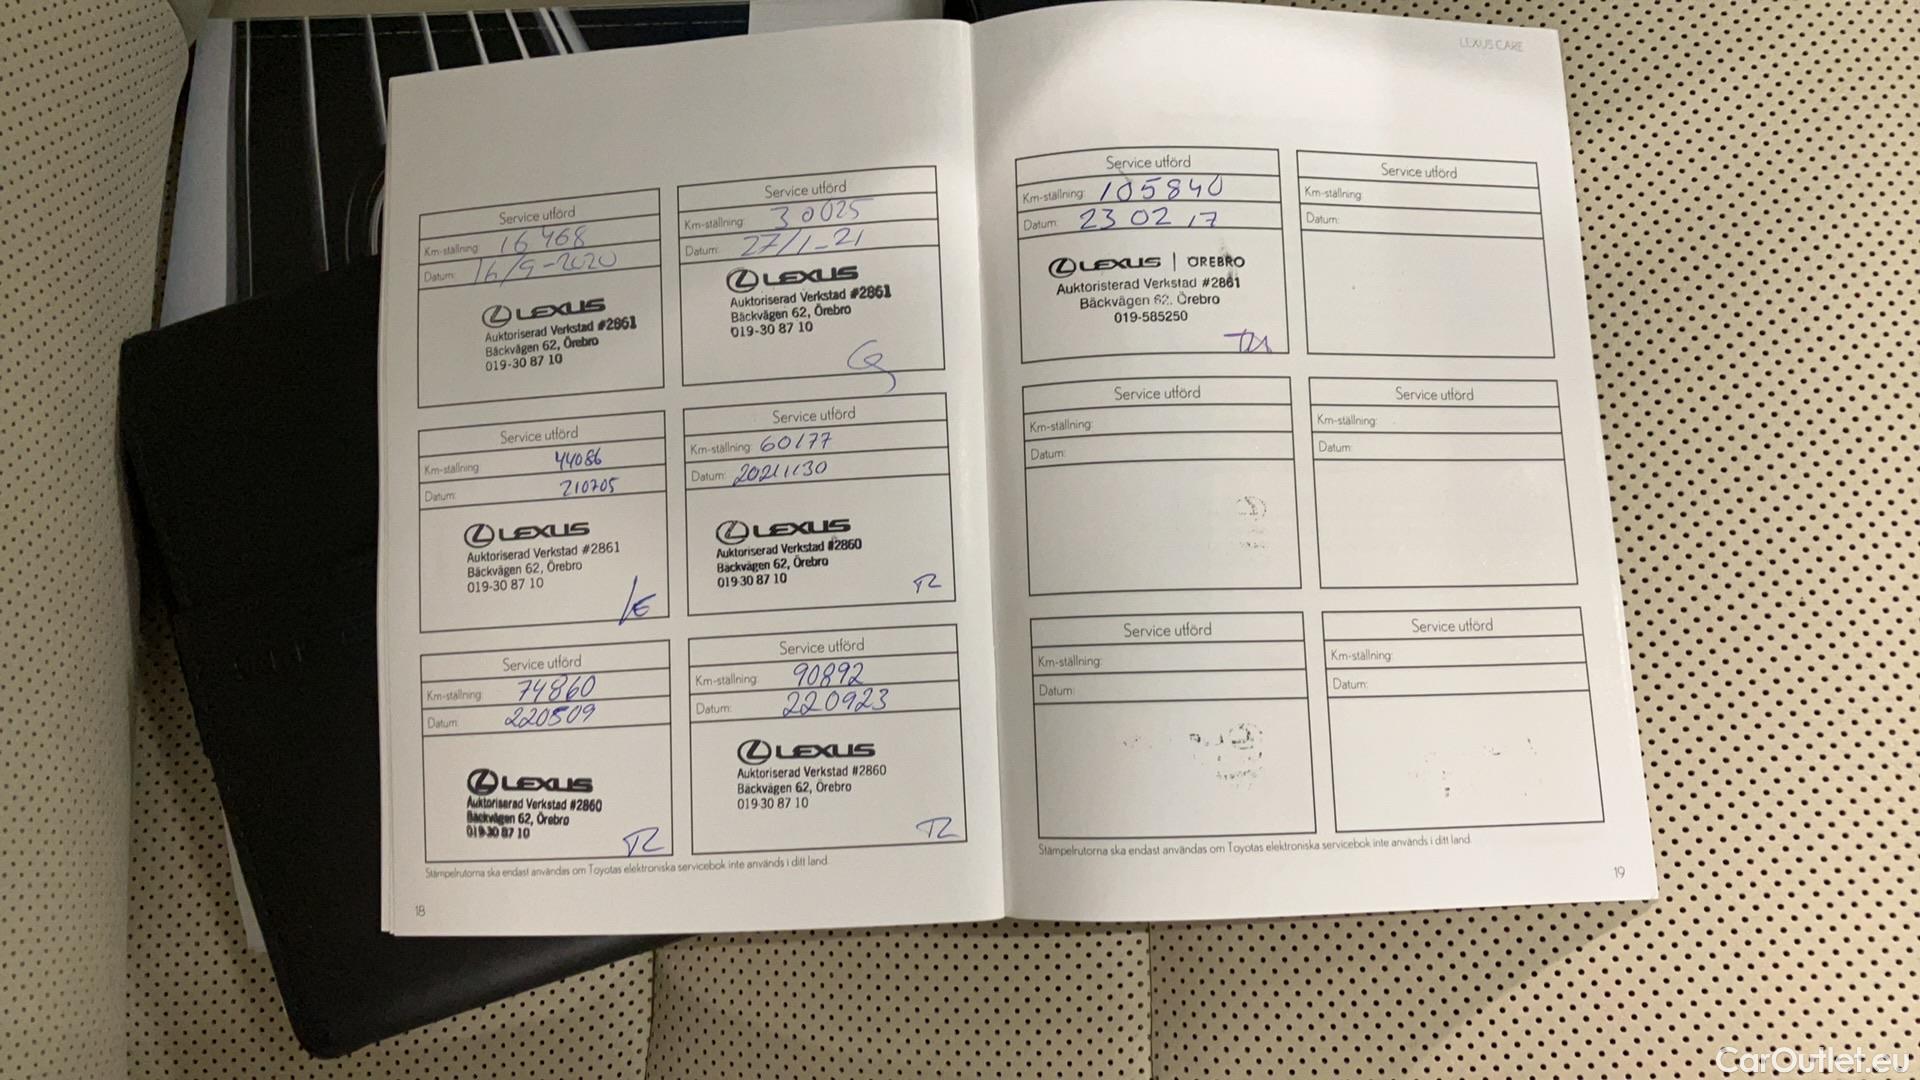 LEXUS CARE
Service utförd
Km-ställning: 16 468
Datum: 16/9-2020
LEXUS
Auktoriserad Verkstad #2861
Bäckvägen 62, Örebro
019-30 87 10
Service utförd
Km-ställning: 30025
Datum: 27/1-21
LEXUS
Auktoriserad Verkstad #2861
Bäckvägen 62, Örebro
019-30 87 10
Service utförd
Km-ställning: 44086
Datum: 210705
LEXUS
Auktoriserad Verkstad #2861
Bäckvägen 62, Örebro
019-30 87 10
Service utförd
Km-ställning: 60177
Datum: 20211130
LEXUS
Auktoriserad Verkstad #2860
Bäckvägen 62, Örebro
019-30 87 10
Service utförd
Km-ställning: 74860
Datum: 220509
LEXUS
Auktoriserad Verkstad #2860
Bäckvägen 62, Örebro
019-30 87 10
Service utförd
Km-ställning: 90892
Datum: 220923
LEXUS
Auktoriserad Verkstad #2860
Bäckvägen 62, Örebro
019-30 87 10
Stämpelrutorna ska endast användas om Toyotas elektroniska servicebok inte används i ditt land.
18
Service utförd
Km-ställning: 105840
Datum: 23 02 17
LEXUS | ÖREBRO
Auktoristerad Verkstad #2861
Bäckvägen 62, Örebro
019-585250
Service utförd
Km-ställning:
Datum:
Service utförd
Km-ställning:
Datum:
Service utförd
Km-ställning:
Datum:
Service utförd
Km-ställning:
Datum:
Service utförd
Km-ställning:
Datum:
Stämpelrutorna ska endast användas om Toyotas elektroniska servicebok inte används i ditt land.
19
CarOutlet.eu